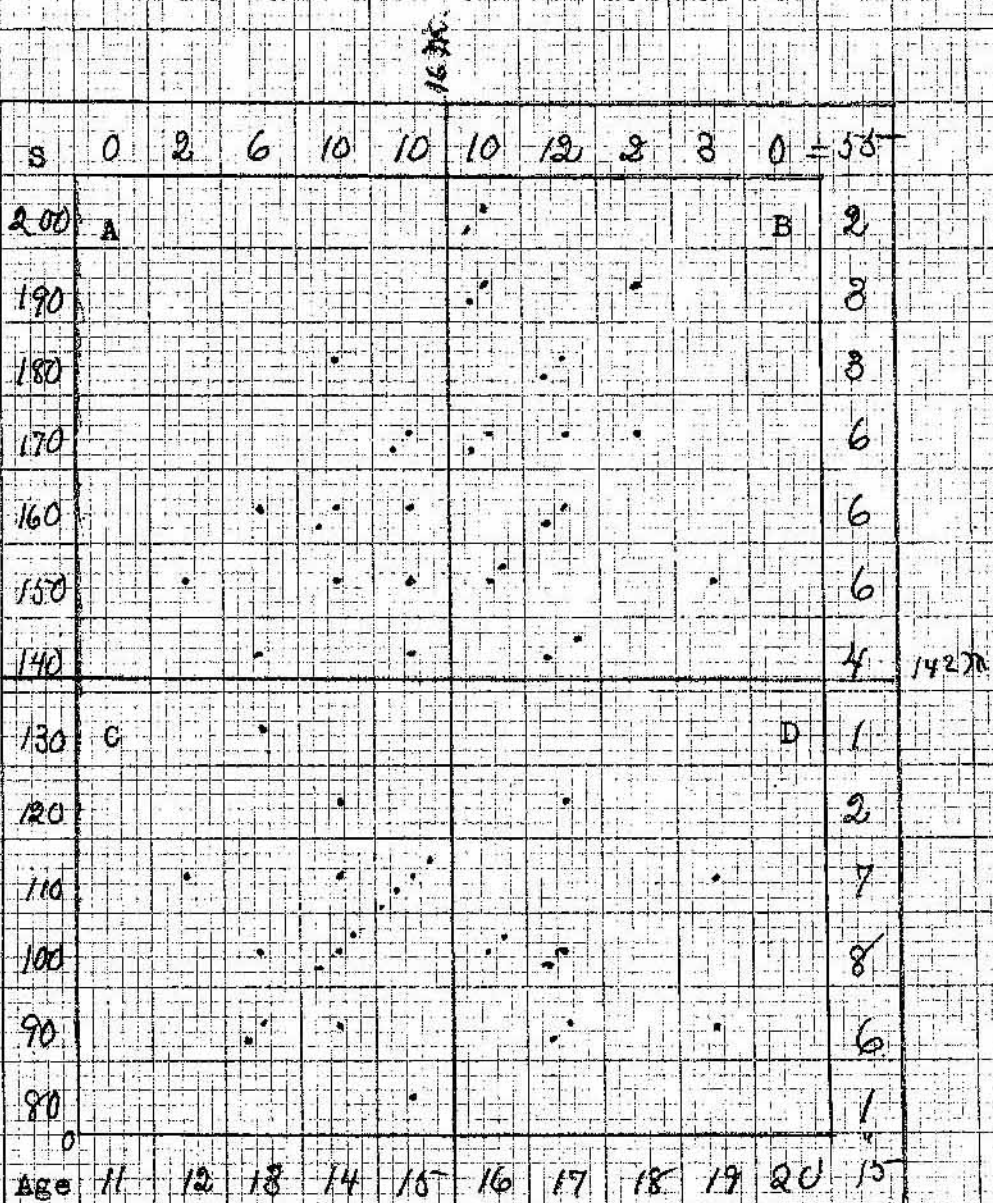 16 M.
S 0 2 6 10 10 10 12 2 3 0 = 55
200 A B 2
190 3
180 3
170 6
160 6
150 6
140 4 142 M
130 C D 1
120 2
110 7
100 8
90 6
80 1
0
Age 11 12 13 14 15 16 17 18 19 20 15